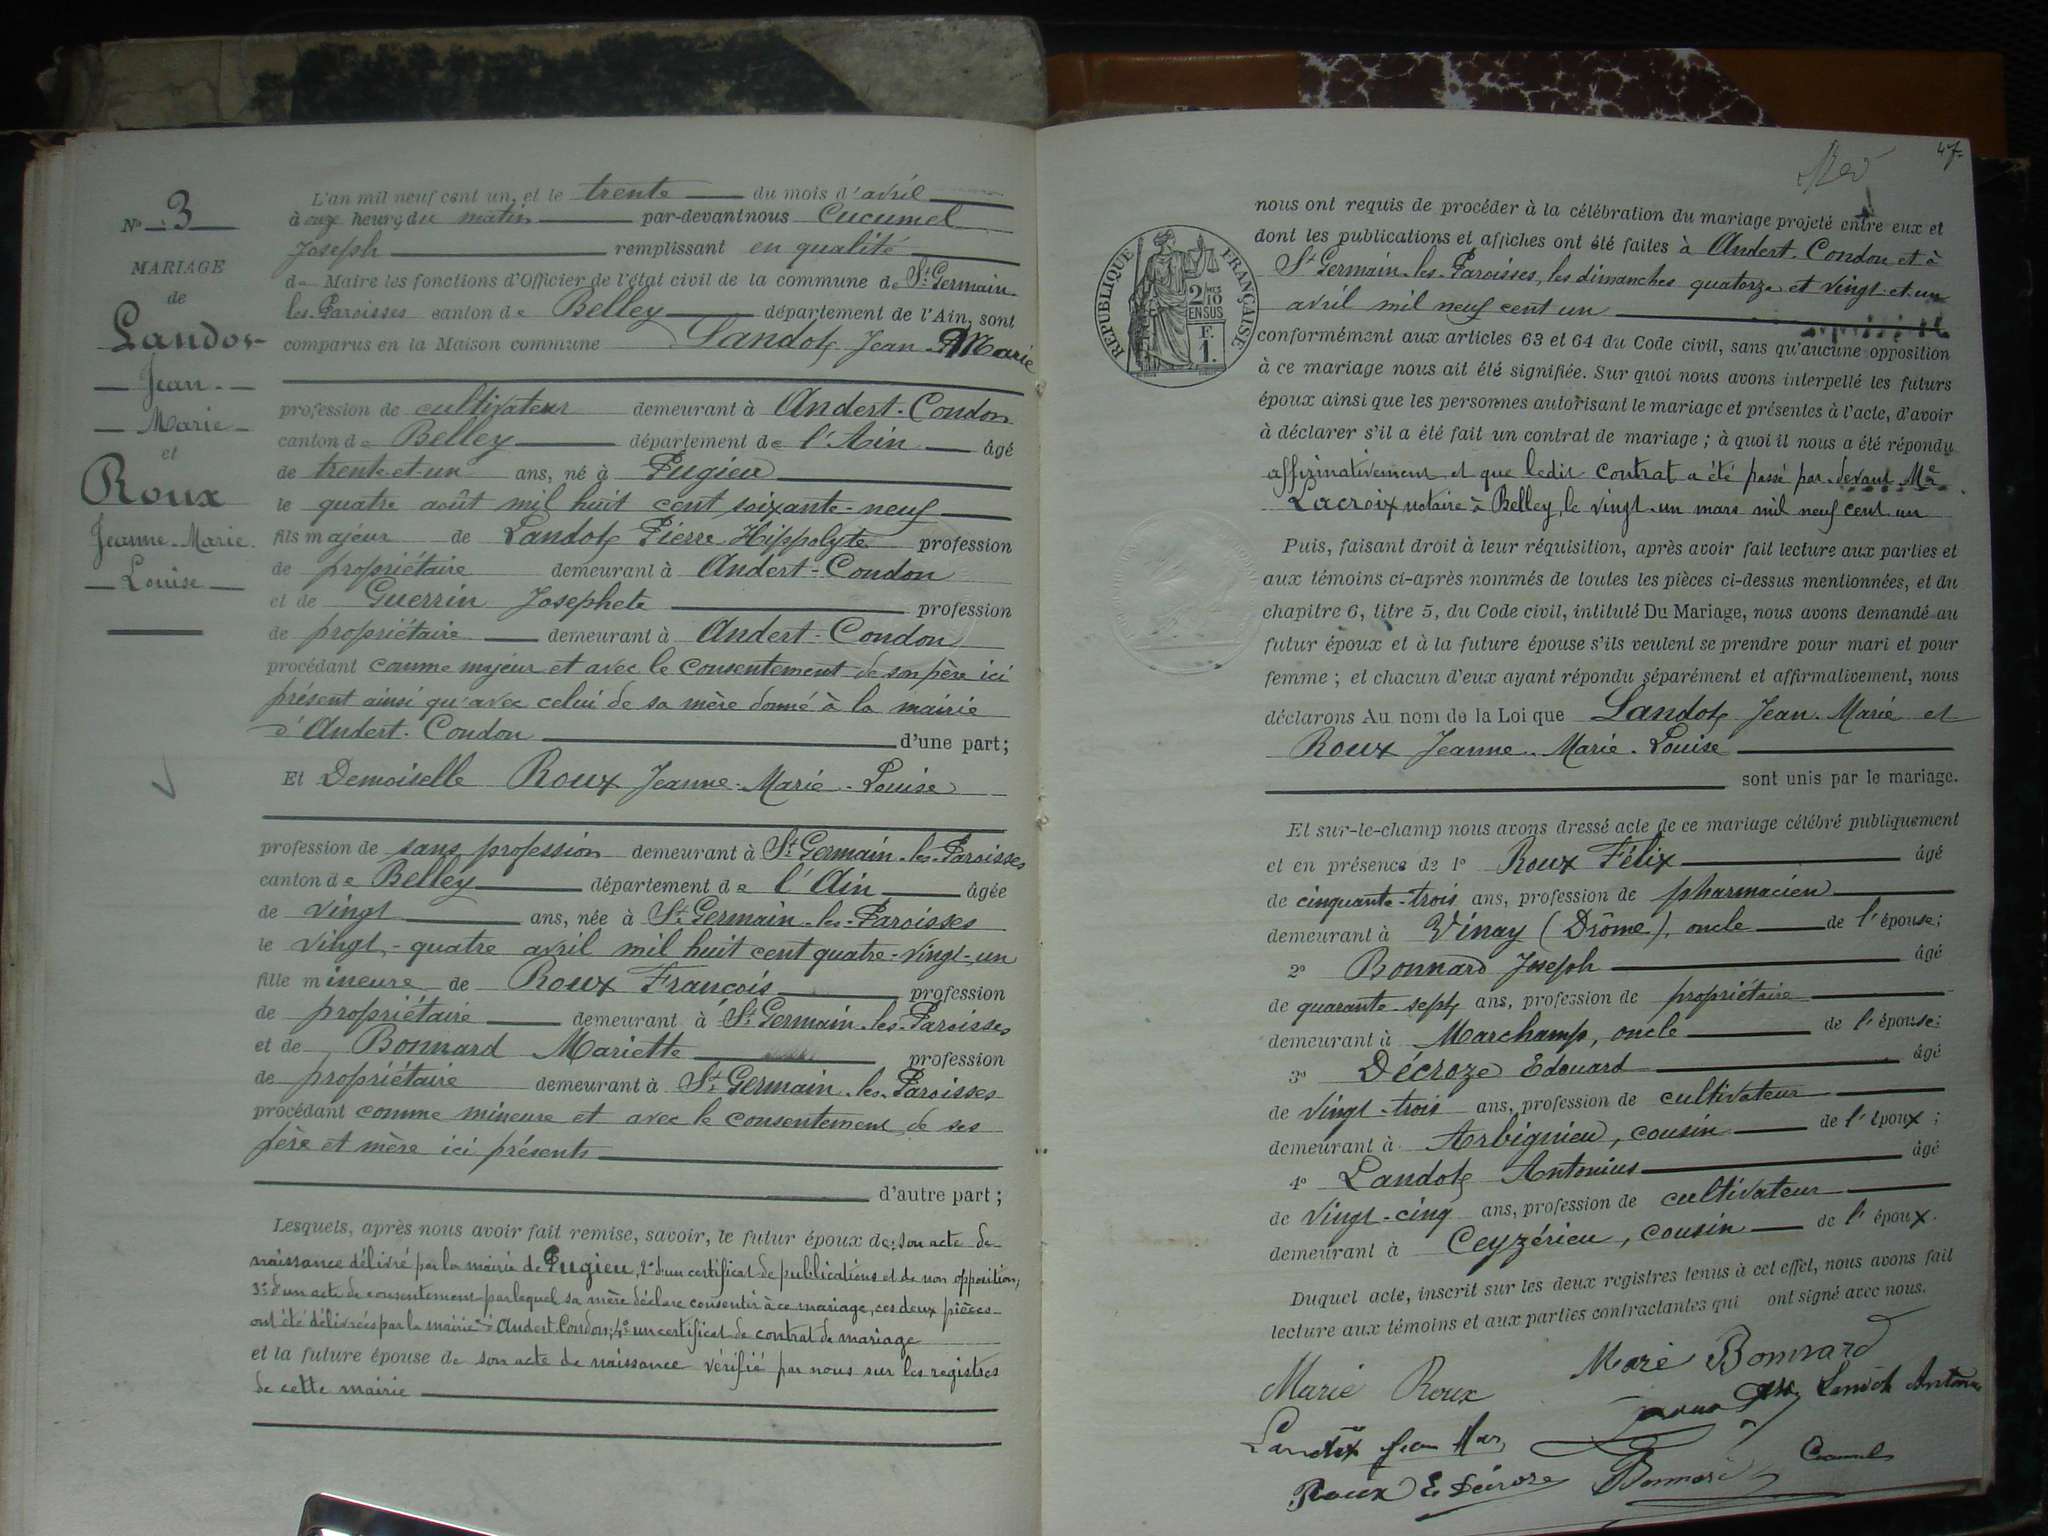 No 3
MARIAGE
de
Landot
Jean
Marie
et
Roux
Jeanne-Marie
Louise
L'an mil neuf cent un, et le trente du mois d'avril
à onze heures du matin par-devant nous Cucumel
Joseph remplissant en qualité
de Maire les fonctions d'Officier de l'état civil de la commune de St Germain-
les-Paroisses canton de Belley département de l'Ain, sont
comparus en la Maison commune Landot Jean Marie
profession de cultivateur demeurant à Andert-Condon
canton de Belley département de l'Ain âgé
de trente-et-un ans, né à Pugieu
le quatre août mil huit cent soixante-neuf
fils majeur de Landot Pierre Hippolyte profession
de propriétaire demeurant à Andert-Condon
et de Guerrin Josephete profession
de propriétaire demeurant à Andert-Condon
procédant comme majeur et avec le consentement de son père ici
présent ainsi qu'avec celui de sa mère donné à la mairie
d'Andert-Condon d'une part;
Et Demoiselle Roux Jeanne-Marie-Louise
profession de sans profession demeurant à St Germain-les-Paroisses
canton de Belley département de l'Ain âgée
de vingt ans, née à St Germain-les-Paroisses
le vingt-quatre avril mil huit cent quatre-vingt-un
fille mineure de Roux François profession
de propriétaire demeurant à St Germain-les-Paroisses
et de Bonnard Mariette profession
de propriétaire demeurant à St Germain-les-Paroisses
procédant comme mineure et avec le consentement de ses
père et mère ici présents
d'autre part;
Lesquels, après nous avoir fait remise, savoir, le futur époux de: son acte de
naissance délivré par la mairie de Pugieu, 2° d'un certificat de publications et de non opposition,
3° d'un acte de consentement par lequel sa mère déclare consentir à ce mariage, ces deux pièces
ont été délivrées par la mairie d'Andert-Condon; 4° un certificat de contrat de mariage
et la future épouse de son acte de naissance vérifié par nous sur les registres
de cette mairie
47
REPUBLIQUE FRANÇAISE
2/10 EN SUS
F.
1.
nous ont requis de procéder à la célébration du mariage projeté entre eux et
dont les publications et affiches ont été faites à Andert-Condon et à
St Germain-les-Paroisses, les dimanches quatorze et vingt-et-un
avril mil neuf cent un
conformément aux articles 63 et 64 du Code civil, sans qu'aucune opposition
à ce mariage nous ait été signifiée. Sur quoi nous avons interpellé les futurs
époux ainsi que les personnes autorisant le mariage et présentes à l'acte, d'avoir
à déclarer s'il a été fait un contrat de mariage; à quoi il nous a été répondu
affirmativement et que ledit contrat a été passé par devant Me
Lacroix notaire à Belley, le vingt-un mars mil neuf cent un
Puis, faisant droit à leur réquisition, après avoir fait lecture aux parties et
aux témoins ci-après nommés de toutes les pièces ci-dessus mentionnées, et du
chapitre 6, titre 5, du Code civil, intitulé Du Mariage, nous avons demandé au
futur époux et à la future épouse s'ils veulent se prendre pour mari et pour
femme; et chacun d'eux ayant répondu séparément et affirmativement, nous
déclarons Au nom de la Loi que Landot Jean-Marie et
Roux Jeanne-Marie-Louise
sont unis par le mariage.
Et sur-le-champ nous avons dressé acte de ce mariage célébré publiquement
et en présence de 1° Roux Félix âgé
de cinquante-trois ans, profession de pharmacien
demeurant à Vinay (Drôme), oncle de l'épouse;
2° Bonnard Joseph âgé
de quarante-sept ans, profession de propriétaire
demeurant à Marchamp, oncle de l'épouse;
3° Décroze Edouard âgé
de vingt-trois ans, profession de cultivateur
demeurant à Arbignieu, cousin de l'époux;
4° Landot Antonius âgé
de vingt-cinq ans, profession de cultivateur
demeurant à Ceyzérieu, cousin de l'époux.
Duquel acte, inscrit sur les deux registres tenus à cet effet, nous avons fait
lecture aux témoins et aux parties contractantes qui ont signé avec nous.
Marie Roux Marie Bonnard
Landot Jean Mar
Roux E Décroze Bonnard Cucumel